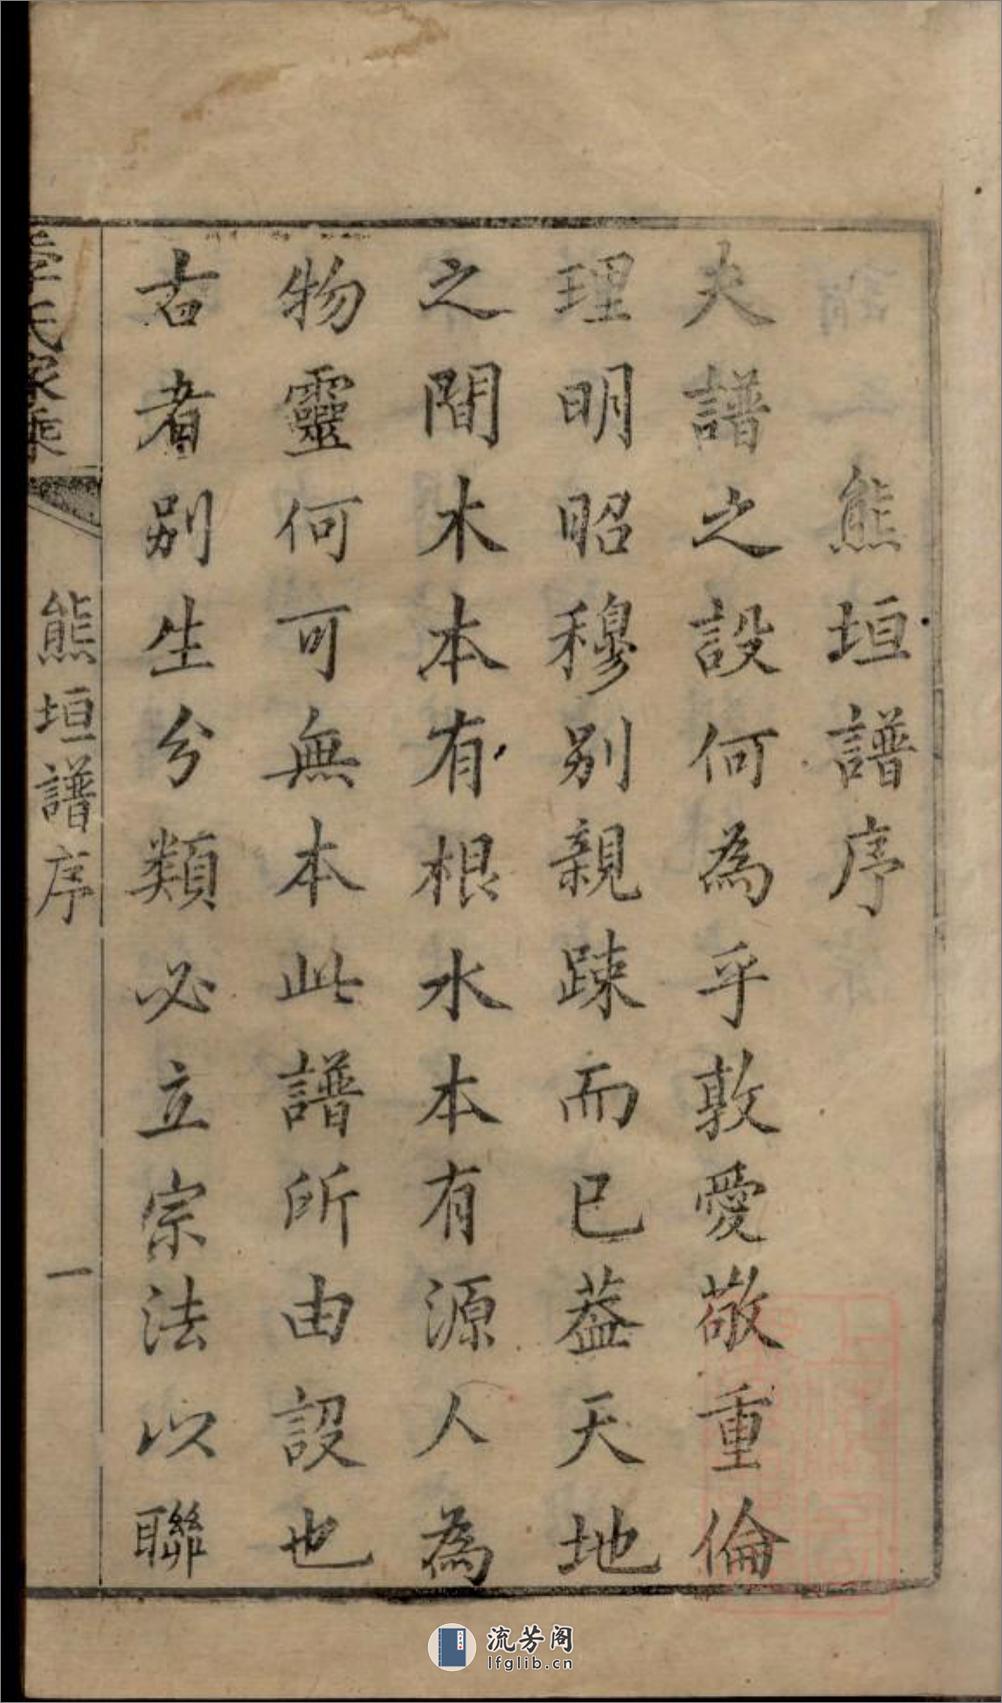 熊垣譜序
夫譜之設何為乎敦愛敬重倫
理明昭穆別親踈而已葢天地
之間木本有根水本有源人為
物靈何可無本此譜所由設也
古者別生分類必立宗法以聯
氏家乘
熊垣譜序
一
流芳阁
lfglib.cn